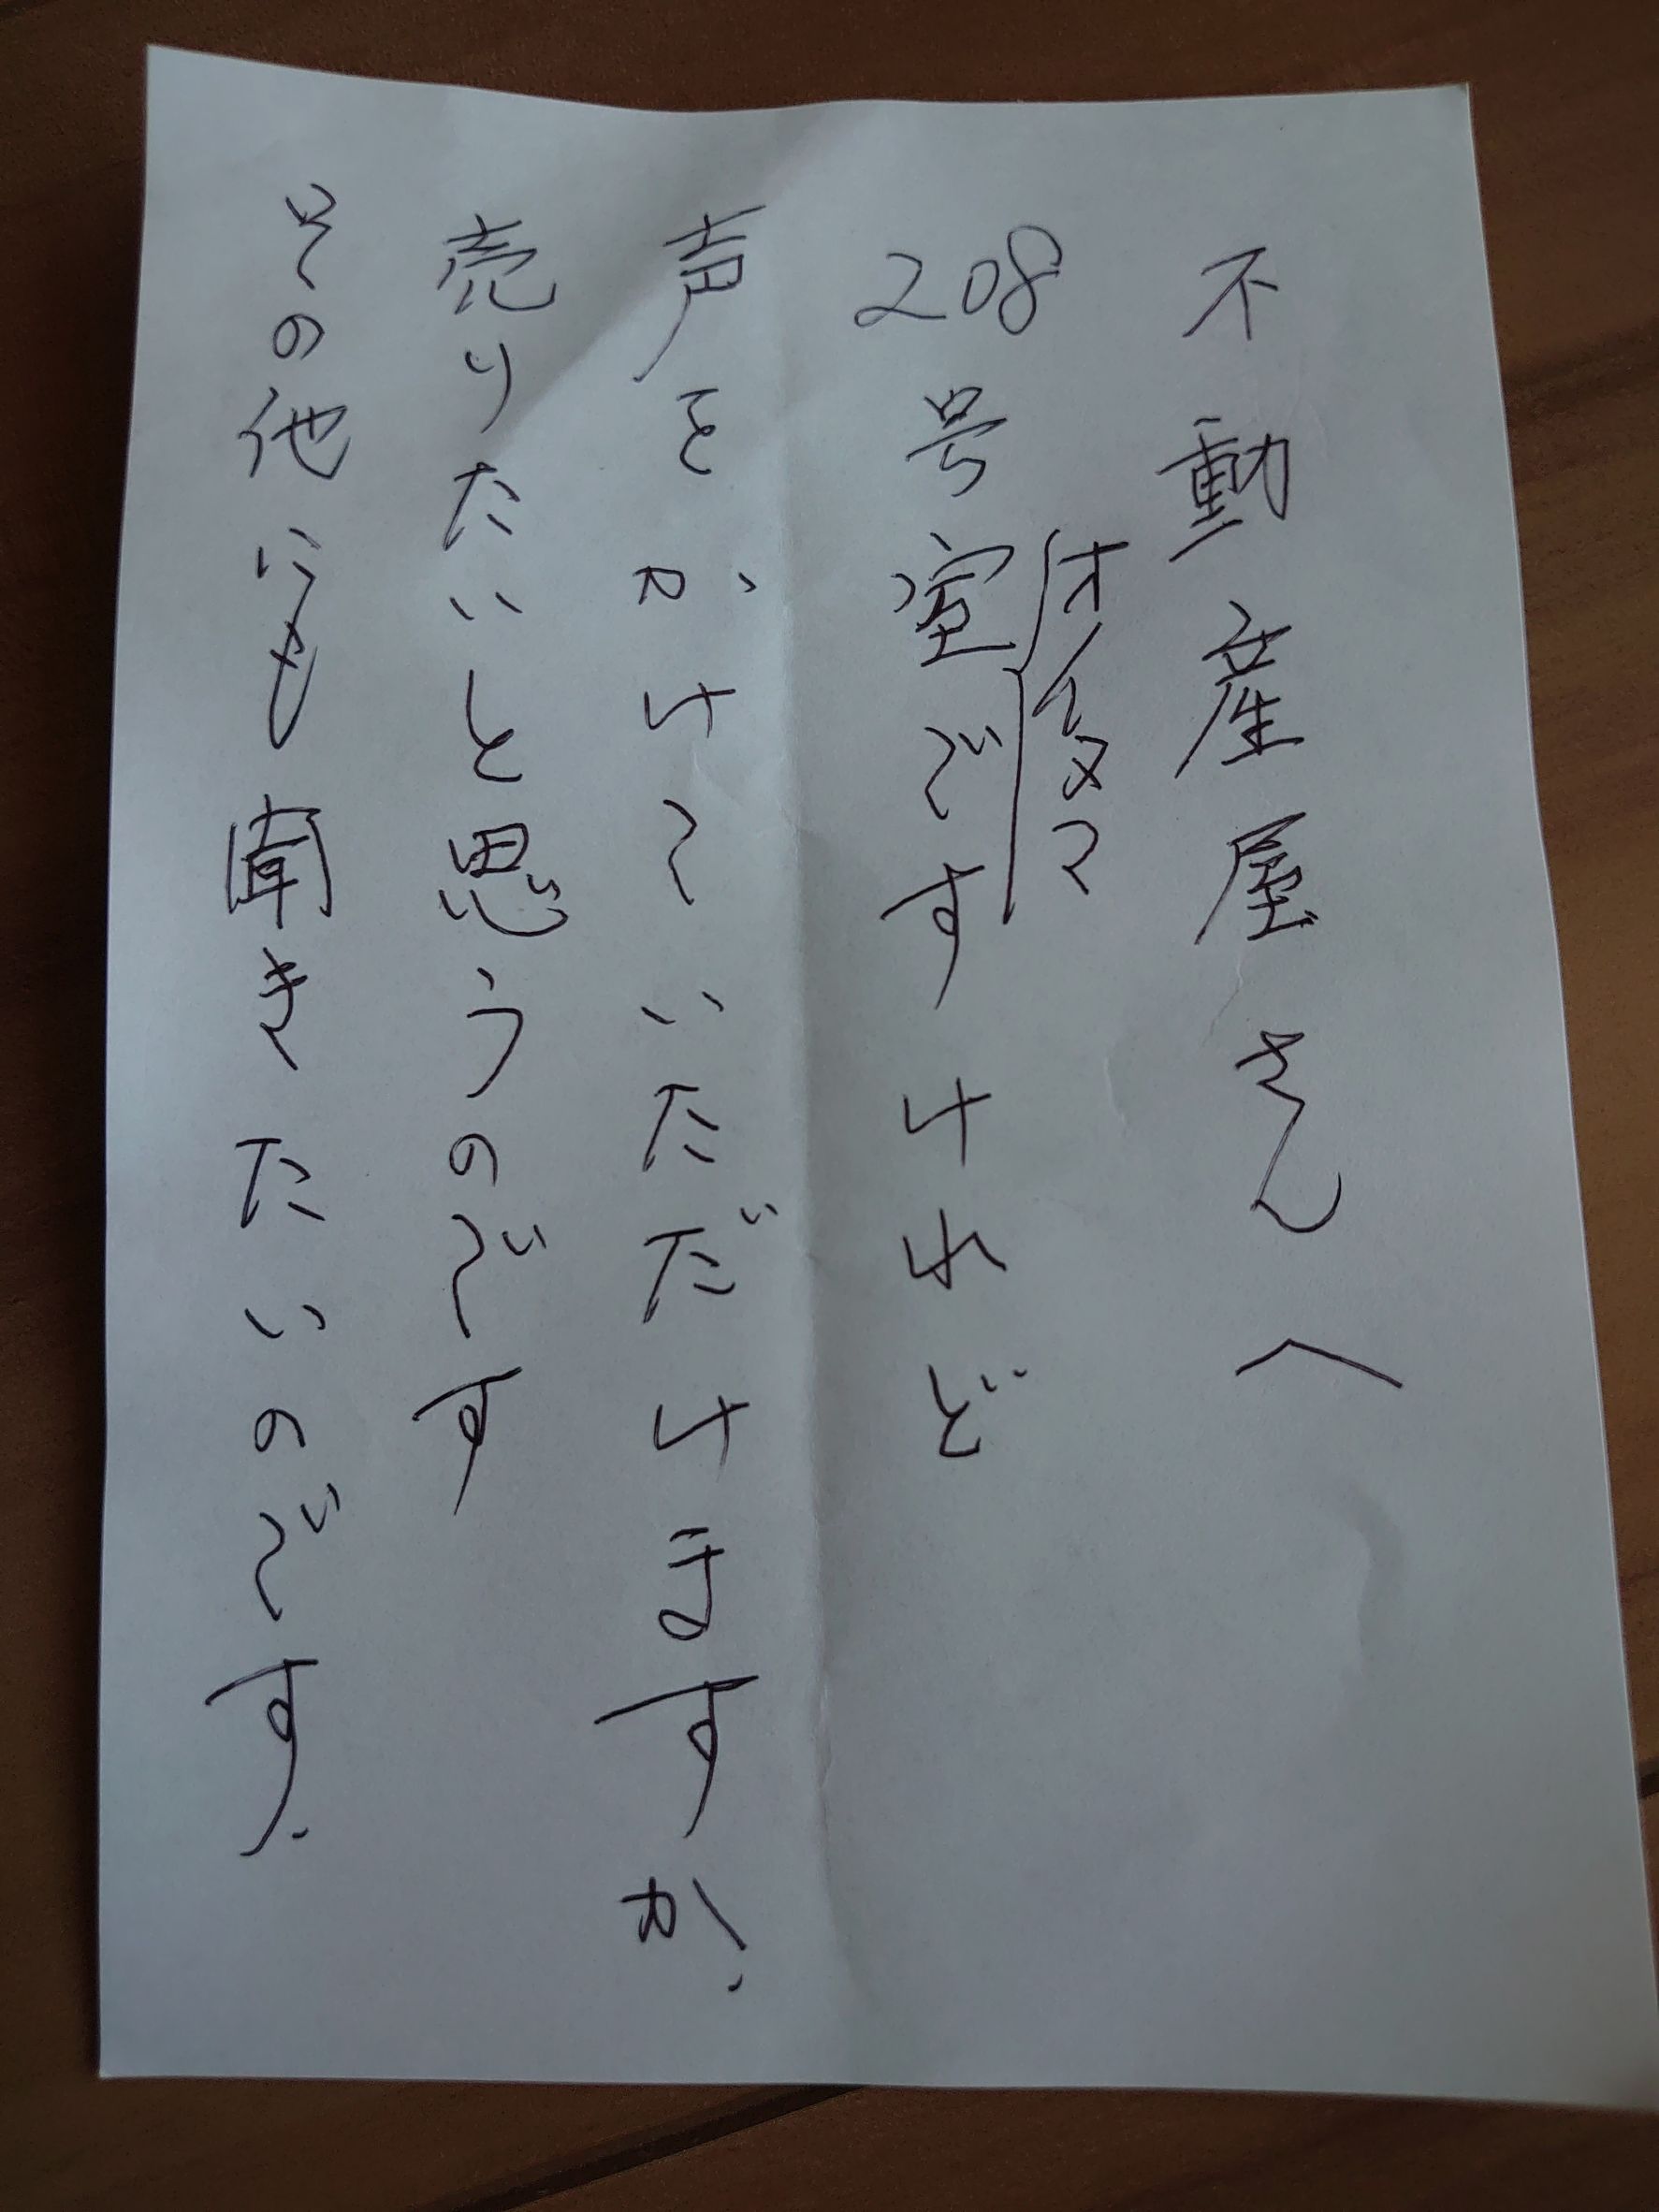 不動産屋さんへ
208号室ですけれど
オヌマ
声をかけていただけますか.
売りたいと思うのです
その他にも聞きたいのです.